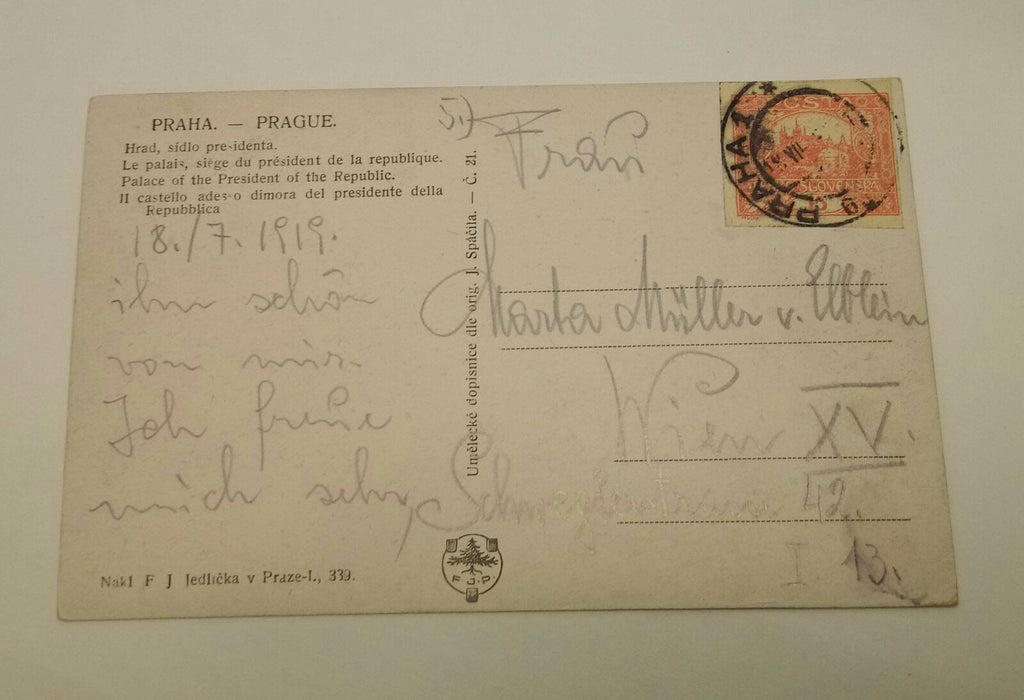 PRAHA. — PRAGUE.
Hrad, sídlo presidenta.
Le palais, siège du président de la republique.
Palace of the President of the Republic.
Il castello adesso dimora del presidente della
Repubblica
18./7. 1919.
ihm schön
von mir.
Ich freue
mich sehr,
Nakl F J Jedlička v Praze-I., 339.
Umělecké dopisnice dle orig. J. Spáčila. — Č. 21.
F. J. J.
5.)
Frau
Marta Müller v.
Wien XV.
42.
I 13.
PRAHA 1
VII